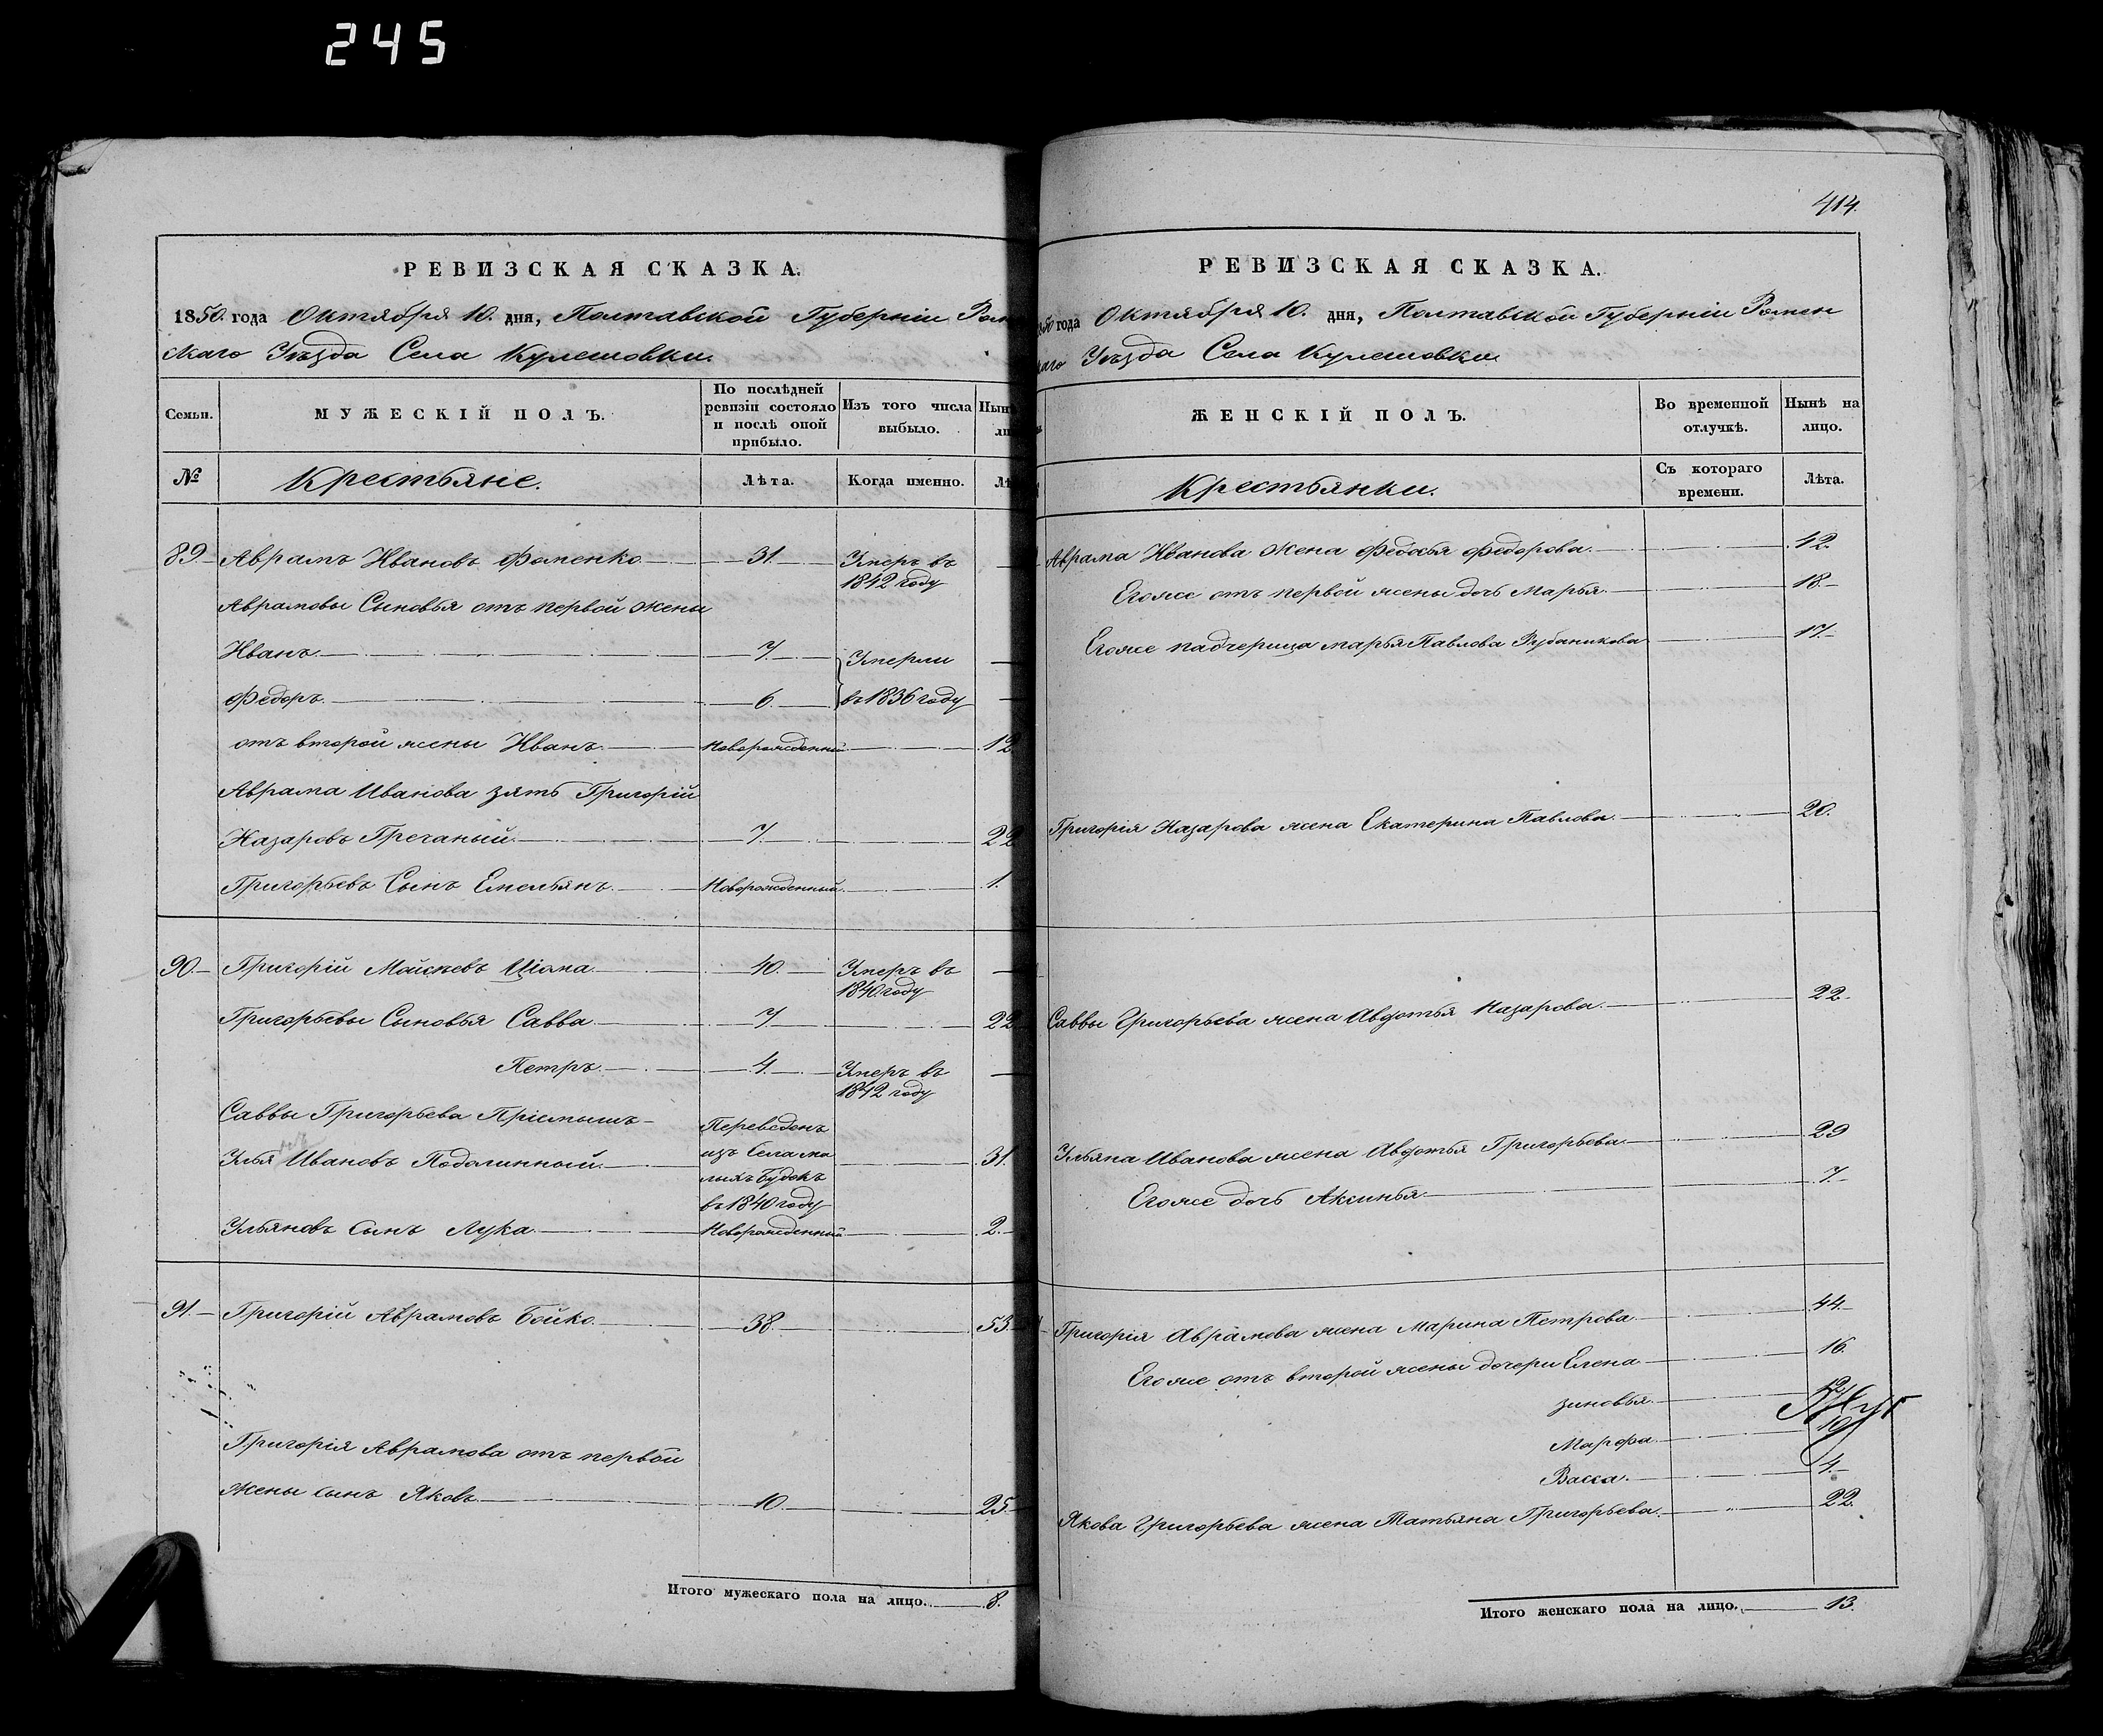 245
РЕВИЗСКАЯ СКАЗКА.
1850. года Октября 10. дня, Полтавской Губерніи Ромен
скаго Уѣзда Села Кулешовки.
Семьи.
МУЖЕСКІЙ ПОЛЪ.
По послѣдней ревизіи состояло и послѣ оной прибыло.
Изъ того числа выбыло.
№
Крестьяне.
Лѣта.
Когда именно.
89. Аврамъ Ивановъ Фоменко. 31. Умеръ въ 1842 году
Аврамовы Сыновья отъ первой жены
Иванъ 7. Умерли
Федоръ. 6. въ 1836 году
отъ второй жены Иванъ Новорожденный 12
Аврама Иванова зять Григорій
Назаровъ Гречаный. 7. 22
Григорьевъ Сынъ Емельянъ. Новорожденный. 1.
90. Григорій Мойсеевъ 40. Умеръ въ 1840 году
Григорьевы Сыновья Савва 7 22
Петръ. 4. Умеръ въ 1842 году
Саввы Григорьева Пріемышъ Переведенъ
Ивановъ изъ Села ма 31.
лыхъ Будокъ
въ 1840 году
Ульяновъ сынъ Лука Новорожденный 2.
91. Григорій Аврамовъ Бойко. 38. 53.
Григорія Аврамова отъ первой
жены сынъ Яковъ. 10. 25.
Итого мужескаго пола на лицо. 8.
414.
РЕВИЗСКАЯ СКАЗКА.
года Октября 10. дня, Полтавской Губерніи Ромен
скаго Уѣзда Села Кулешовки
ЖЕНСКІЙ ПОЛЪ.
Во временной отлучкѣ.
Нынѣ на лицо.
Крестьянки.
Съ котораго времени.
Лѣта.
Аврама Иванова жена Федосья Федорова. 42.
Егоже отъ первой жены дочь Марья 18.
Егоже падчерица марья Павлова 17.
Григорія Назарова жена Екатерина Павлова. 20.
Саввы Григорьева жена Авдотья Назарова. 22.
Ульяна Иванова жена Авдотья Григорьева 29
Егоже дочь Аксинья 7
Григорія Аврамова жена Марина Петрова 44.
Егоже отъ второй жены дочери Елена 16.
зиновья
Марфа 10
Васса. 4.
Якова Григорьева жена Татьяна Григорьева. 22.
Итого женскаго пола на лицо. 13.